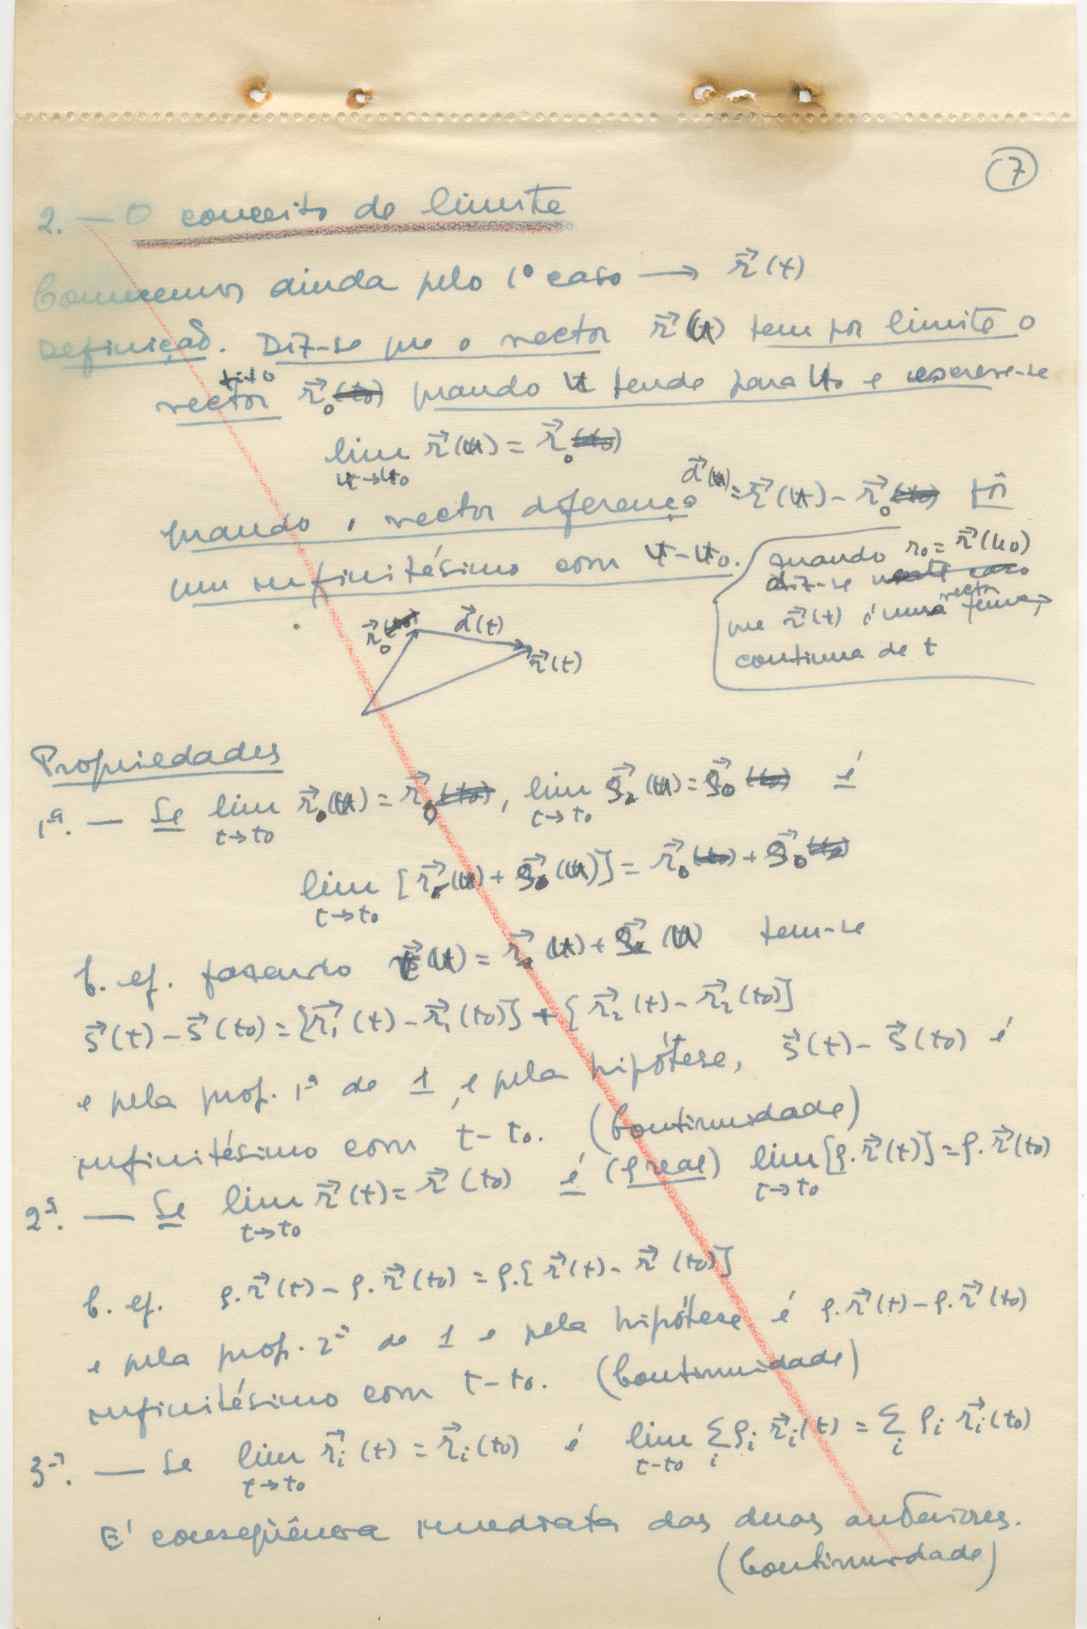 7
2. — O conceito de limite
Comecemos ainda pelo 1º caso → r⃗(t)
Definição. Diz-se que o vector r⃗(u) tem por limite o
vector fixo r⃗₀(t₀) quando u tende para u₀ e escreve-se
lim r⃗(u) = r⃗₀(t₀)
u→u₀
quando o vector diferença d⃗(u) = r⃗(u) - r⃗₀(t₀) fôr
um infinitésimo com u-u₀.
quando r₀ = r⃗(u₀)
diz-se neste caso
que r⃗(t) é uma função vector
contínua de t
r⃗₀(t₀) d⃗(t)
r⃗(t)
Propriedades
1ª. — Se lim r⃗(u) = r⃗₀(t₀), lim ρ⃗(u) = ρ⃗₀(t₀) é
t→t₀ t→t₀
lim [r⃗(u) + ρ⃗(u)] = r⃗₀(t₀) + ρ⃗₀(t₀)
t→t₀
C. ef. fazendo s⃗(u) = r⃗(u) + ρ⃗(u) tem-se
s⃗(t) - s⃗(t₀) = [r⃗₁(t) - r⃗₁(t₀)] + [r⃗₂(t) - r⃗₂(t₀)]
e pela prop. 1ª de 1, e pela hipótese, s⃗(t) - s⃗(t₀) é
infinitésimo com t-t₀. (Continuidade)
2ª. — Se lim r⃗(t) = r⃗(t₀) é (ρ real) lim [ρ.r⃗(t)] = ρ.r⃗(t₀)
t→t₀ t→t₀
C. ef. ρ.r⃗(t) - ρ.r⃗(t₀) = ρ.[r⃗(t) - r⃗(t₀)]
e pela prop. 2ª de 1 e pela hipótese é ρ.r⃗(t) - ρ.r⃗(t₀)
infinitésimo com t-t₀. (Continuidade)
3ª. — Se lim r⃗ᵢ(t) = r⃗ᵢ(t₀) é lim Σ ρᵢ r⃗ᵢ(t) = Σ ρᵢ r⃗ᵢ(t₀)
t→t₀ t→t₀ i i
E' conseqüência imediata das duas anteriores.
(Continuidade)